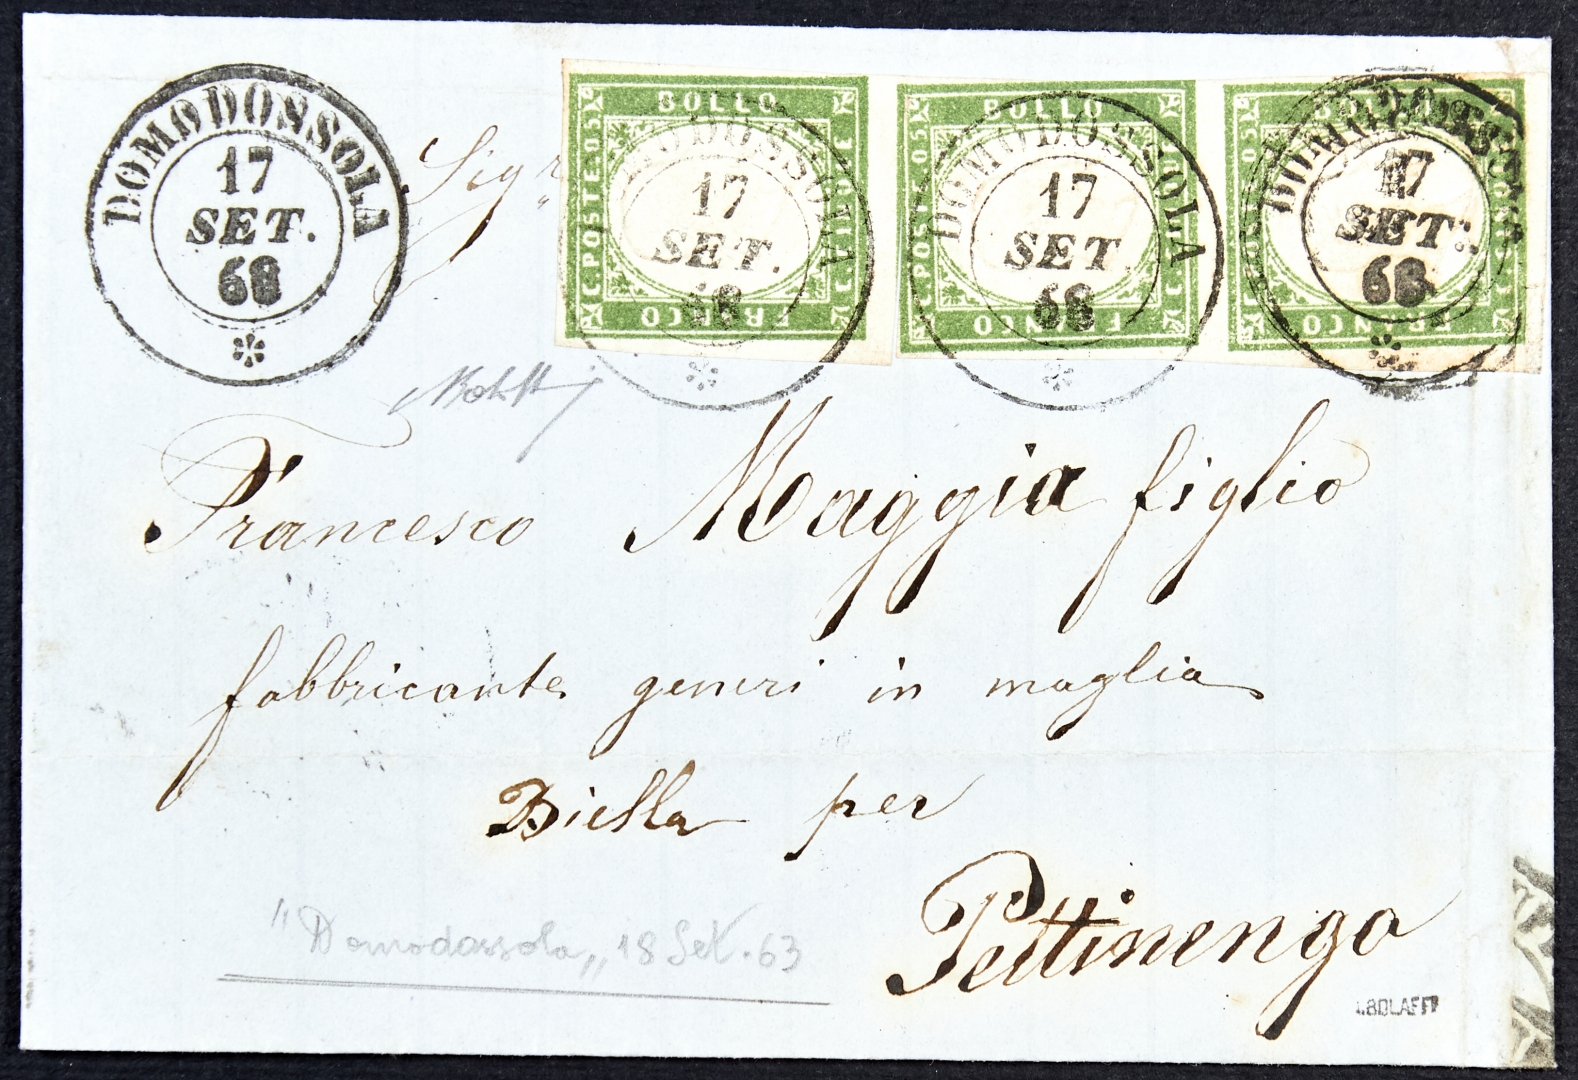 DOMODOSSOLA
17
SET.
68
Sigr
BOLLO
C. POSTE. C. 5
C. CINQUE
FRANCO
DOMODOSSOLA
17
SET.
68
BOLLO
C. POSTE. C. 5
FRANCO
DOMODOSSOLA
17
SET.
68
BOLLO
FRANCO
DOMODOSSOLA
17
SET.
68
Francesco Maggia figlio
fabbricante generi in maglia
Biella per
Pettinengo
"Domodossola„ 18 Set. 63
A.BOLAFFI